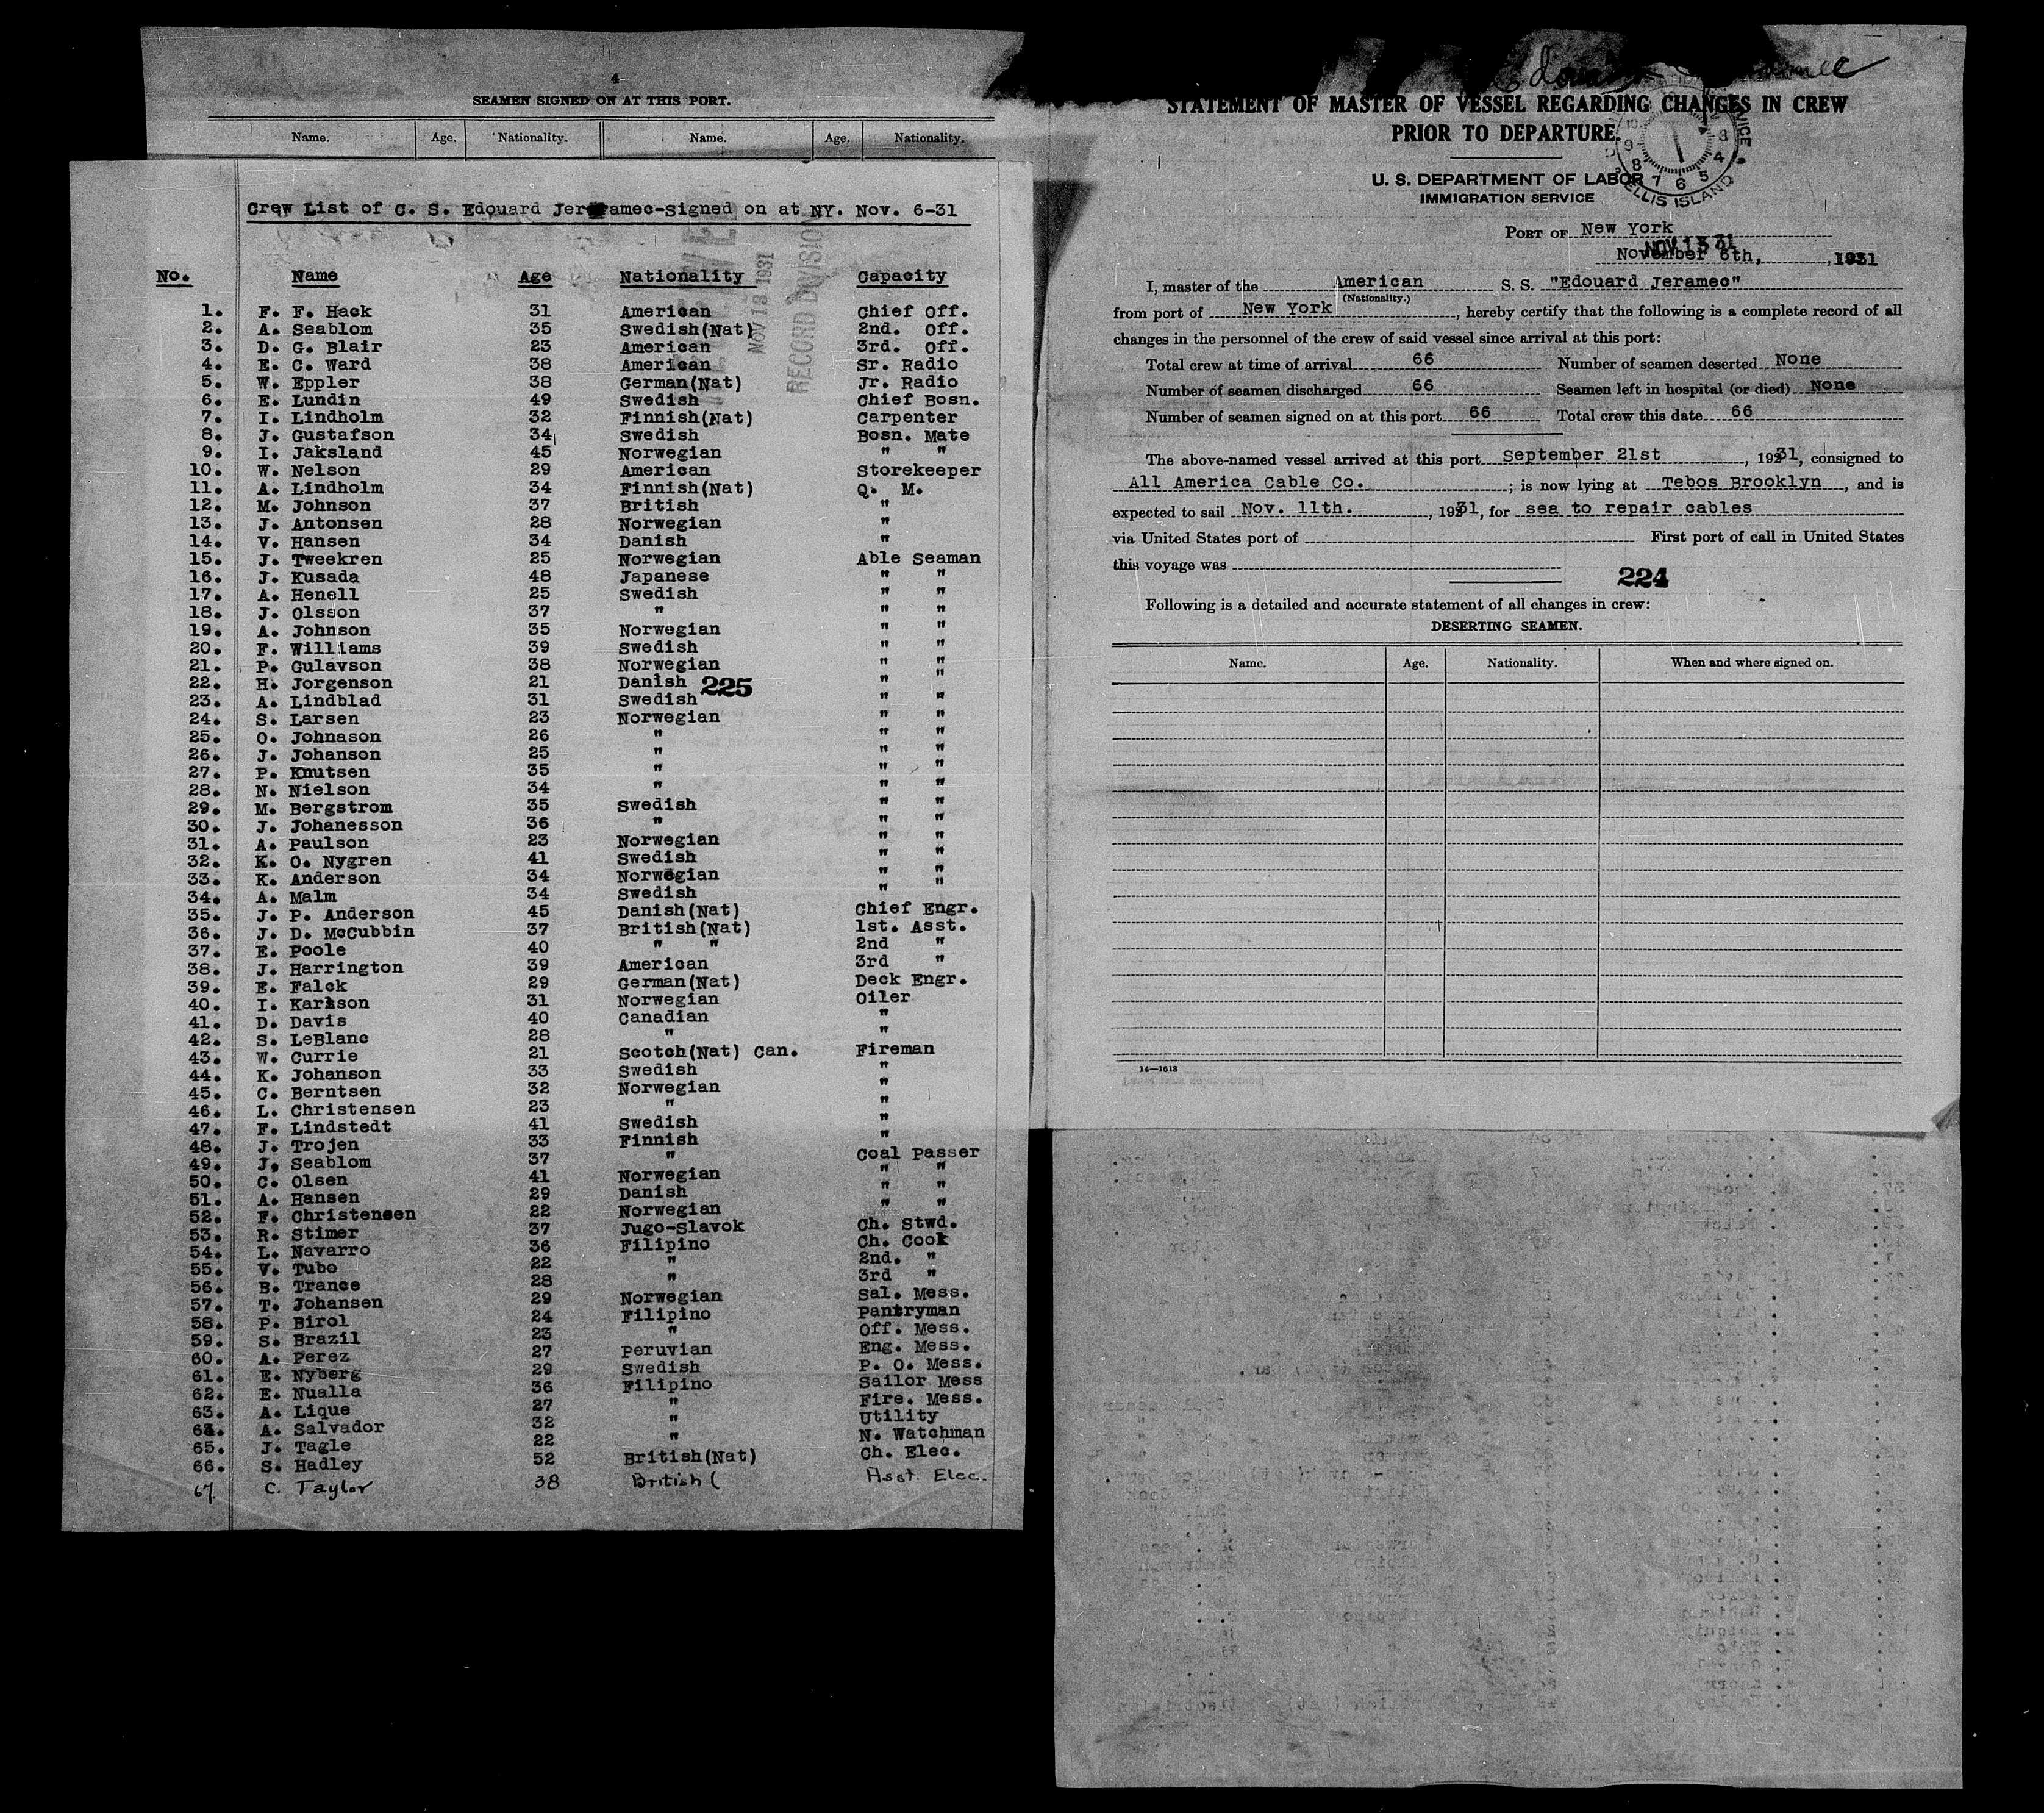 4
SEAMEN SIGNED ON AT THIS PORT.
Name. Age. Nationality. Name. Age. Nationality.
Crew List of C. S. Edouard Jeramec-Signed on at NY. Nov. 6-31
NOV 13 1931
RECORD DIVISION
No. Name Age Nationality Capacity
1. F. F. Hack 31 American Chief Off.
2. A. Seablom 35 Swedish(Nat) 2nd. Off.
3. D. G. Blair 23 American 3rd. Off.
4. E. C. Ward 38 American Sr. Radio
5. W. Eppler 38 German(Nat) Jr. Radio
6. E. Lundin 49 Swedish Chief Bosn.
7. I. Lindholm 32 Finnish(Nat) Carpenter
8. J. Gustafson 34 Swedish Bosn. Mate
9. I. Jaksland 45 Norwegian " "
10. W. Nelson 29 American Storekeeper
11. A. Lindholm 34 Finnish(Nat) Q. M.
12. M. Johnson 37 British "
13. J. Antonsen 28 Norwegian "
14. V. Hansen 34 Danish "
15. J. Tweekren 25 Norwegian Able Seaman
16. J. Kusada 48 Japanese " "
17. A. Henell 25 Swedish " "
18. J. Olsson 37 " " "
19. A. Johnson 35 Norwegian " "
20. F. Williams 39 Swedish " "
21. P. Gulavson 38 Norwegian " "
22. H. Jorgenson 21 Danish " "
225
23. A. Lindblad 31 Swedish " "
24. S. Larsen 23 Norwegian " "
25. O. Johnason 26 " " "
26. J. Johanson 25 " " "
27. P. Knutsen 35 " " "
28. N. Nielson 34 " " "
29. M. Bergstrom 35 Swedish " "
30. J. Johanesson 36 " " "
31. A. Paulson 23 Norwegian " "
32. K. O. Nygren 41 Swedish " "
33. K. Anderson 34 Norwegian " "
34. A. Malm 34 Swedish " "
35. J. P. Anderson 45 Danish(Nat) Chief Engr.
36. J. D. McCubbin 37 British(Nat) 1st. Asst.
37. E. Poole 40 " " 2nd "
38. J. Harrington 39 American 3rd "
39. E. Falck 29 German(Nat) Deck Engr.
40. I. Karlsson 31 Norwegian Oiler
41. D. Davis 40 Canadian "
42. S. LeBlanc 28 " "
43. W. Currie 21 Scotch(Nat) Can. Fireman
44. K. Johanson 33 Swedish "
45. C. Berntsen 32 Norwegian "
46. L. Christensen 23 " "
47. F. Lindstedt 41 Swedish "
48. J. Trojen 33 Finnish "
49. J. Seablom 37 " Coal Passer
50. C. Olsen 41 Norwegian " "
51. A. Hansen 29 Danish " "
52. F. Christensen 22 Norwegian " "
53. R. Stimer 37 Jugo-Slavok Ch. Stwd.
54. L. Navarro 36 Filipino Ch. Cook
55. V. Tubo 22 " 2nd. "
56. B. Trance 28 " 3rd "
57. T. Johansen 29 Norwegian Sal. Mess.
58. P. Birol 24 Filipino Pantryman
59. S. Brazil 23 " Off. Mess.
60. A. Perez 27 Peruvian Eng. Mess.
61. E. Nyberg 29 Swedish P. O. Mess.
62. E. Nualla 36 Filipino Sailor Mess
63. A. Lique 27 " Fire. Mess.
64. A. Salvador 32 " Utility
65. J. Tagle 22 " N. Watchman
66. S. Hadley 52 British(Nat) Ch. Elec.
67. C. Taylor 38 British ( Asst. Elec.
STATEMENT OF MASTER OF VESSEL REGARDING CHANGES IN CREW
PRIOR TO DEPARTURE.
ELLIS ISLAND
U. S. DEPARTMENT OF LABOR
IMMIGRATION SERVICE
PORT OF New York
NOV 13 31
November 6th, , 1931
I, master of the American S. S. "Edouard Jeramec"
(Nationality.)
from port of New York , hereby certify that the following is a complete record of all
changes in the personnel of the crew of said vessel since arrival at this port:
Total crew at time of arrival 66 Number of seamen deserted None
Number of seamen discharged 66 Seamen left in hospital (or died) None
Number of seamen signed on at this port 66 Total crew this date 66
The above-named vessel arrived at this port September 21st , 1931, consigned to
All America Cable Co. ; is now lying at Tebos Brooklyn , and is
expected to sail Nov. 11th. , 1931, for sea to repair cables
via United States port of First port of call in United States
this voyage was
224
Following is a detailed and accurate statement of all changes in crew:
DESERTING SEAMEN.
Name. Age. Nationality. When and where signed on.
14—1613